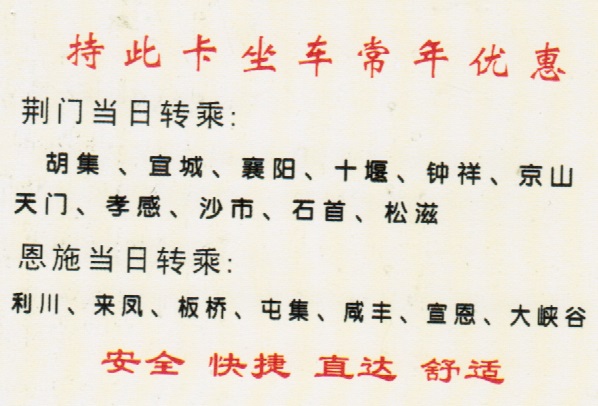 持此卡坐车常年优惠
荆门当日转乘:
胡集、宜城、襄阳、十堰、钟祥、京山
天门、孝感、沙市、石首、松滋
恩施当日转乘:
利川、来凤、板桥、屯集、咸丰、宣恩、大峡谷
安全 快捷 直达 舒适